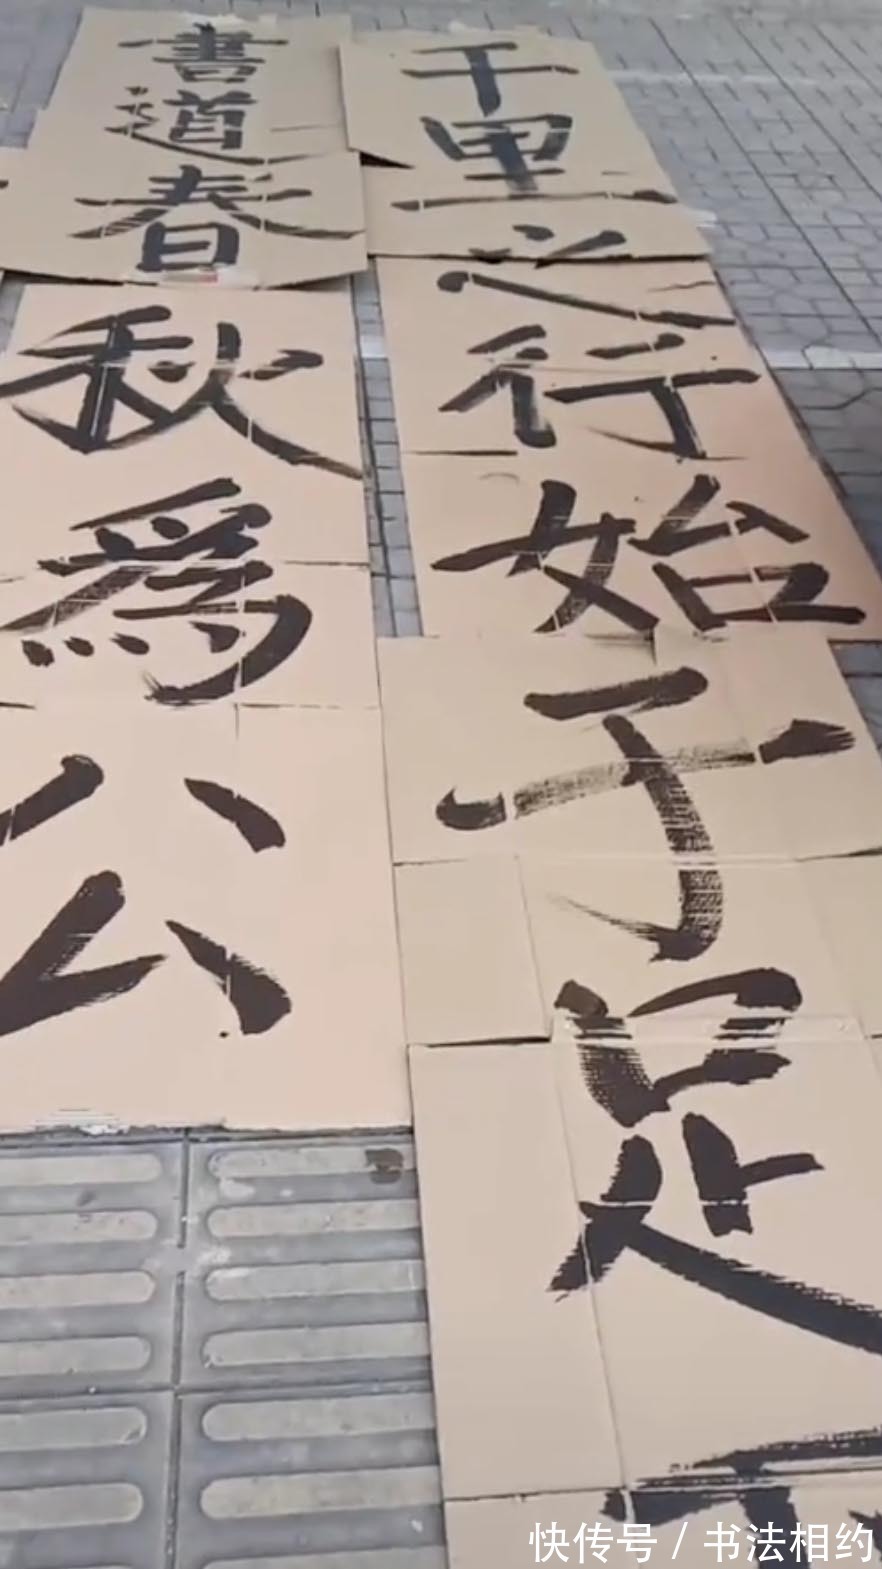 千里之行始于足下
書道春秋為公
快传号 / 书法相约